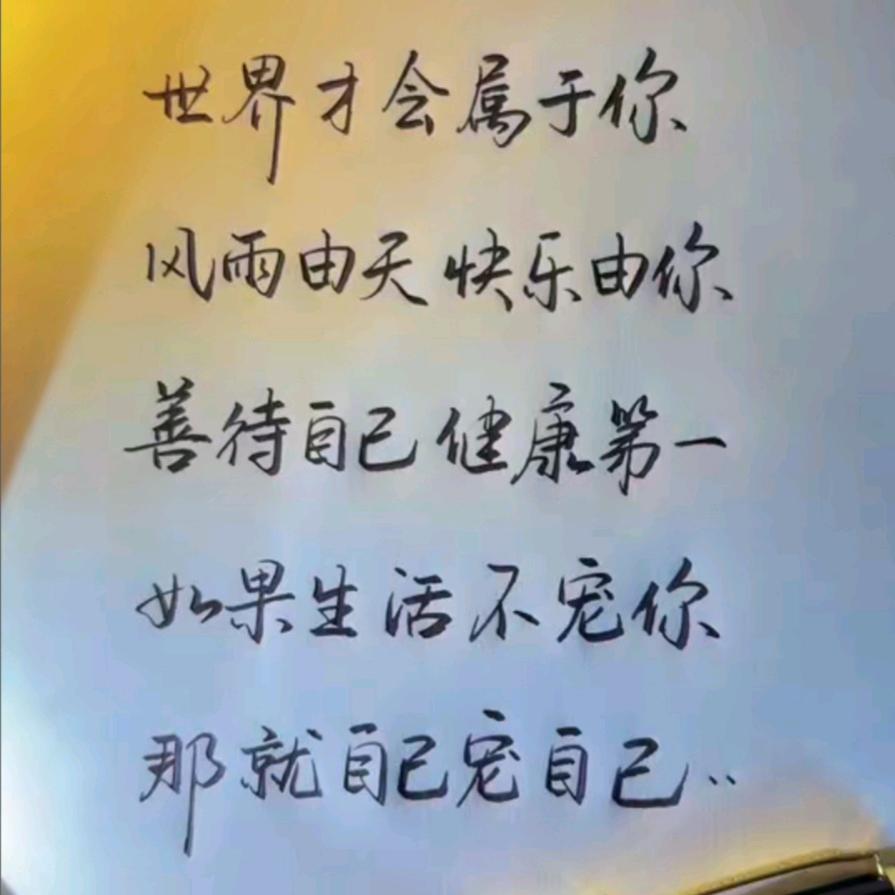 世界才会属于你
风雨由天 快乐由你
善待自己 健康第一
如果生活不宠你
那就自己宠自己..